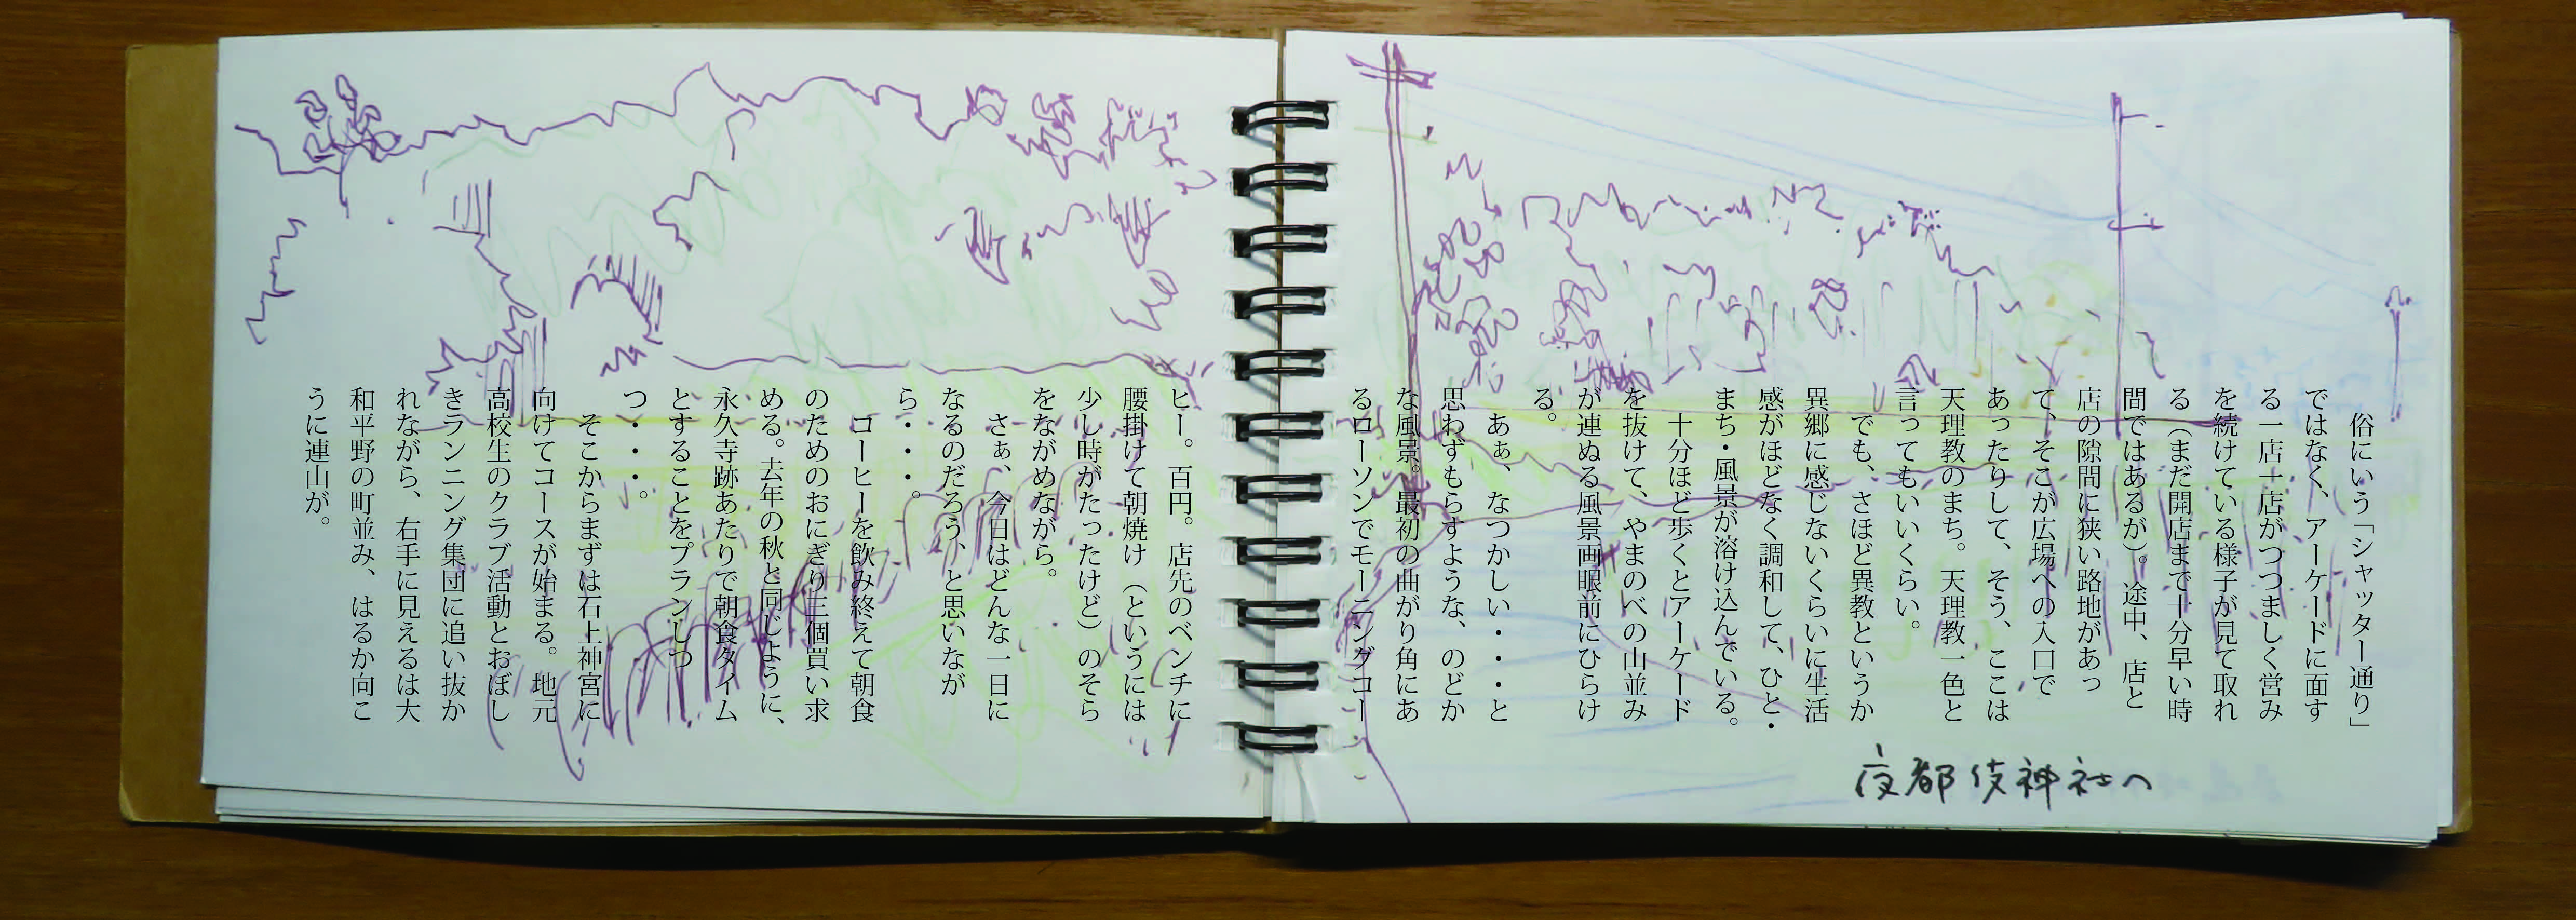 俗にいう「シャッター通り」
ではなく、アーケードに面す
る一店一店がつつましく営み
を続けている様子が見て取れ
る（まだ開店まで十分早い時
間ではあるが）。途中、店と
店の隙間に狭い路地があっ
て、そこが広場への入口で
あったりして、そう、ここは
天理教のまち。天理教一色と
言ってもいいくらい。
でも、さほど異教というか
異郷に感じないくらいに生活
感がほどなく調和して、ひと・
まち・風景が溶け込んでいる。
十分ほど歩くとアーケード
を抜けて、やまのべの山並み
が連ぬる風景画眼前にひらけ
る。
あぁ、なつかしい・・・と
思わずもらすような、のどか
な風景。最初の曲がり角にあ
るローソンでモーニングコー
ヒー。百円。店先のベンチに
腰掛けて朝焼け（というには
少し時がたったけど）のそら
をながめながら。
さぁ、今日はどんな一日に
なるのだろう、と思いなが
ら・・・。
コーヒーを飲み終えて朝食
のためのおにぎり三個買い求
める。去年の秋と同じように、
永久寺跡あたりで朝食タイム
とすることをプランしつ
つ・・・。
そこからまずは石上神宮に
向けてコースが始まる。地元
高校生のクラブ活動とおぼし
きランニング集団に追い抜か
れながら、右手に見えるは大
和平野の町並み、はるか向こ
うに連山が。
夜都伎神社へ